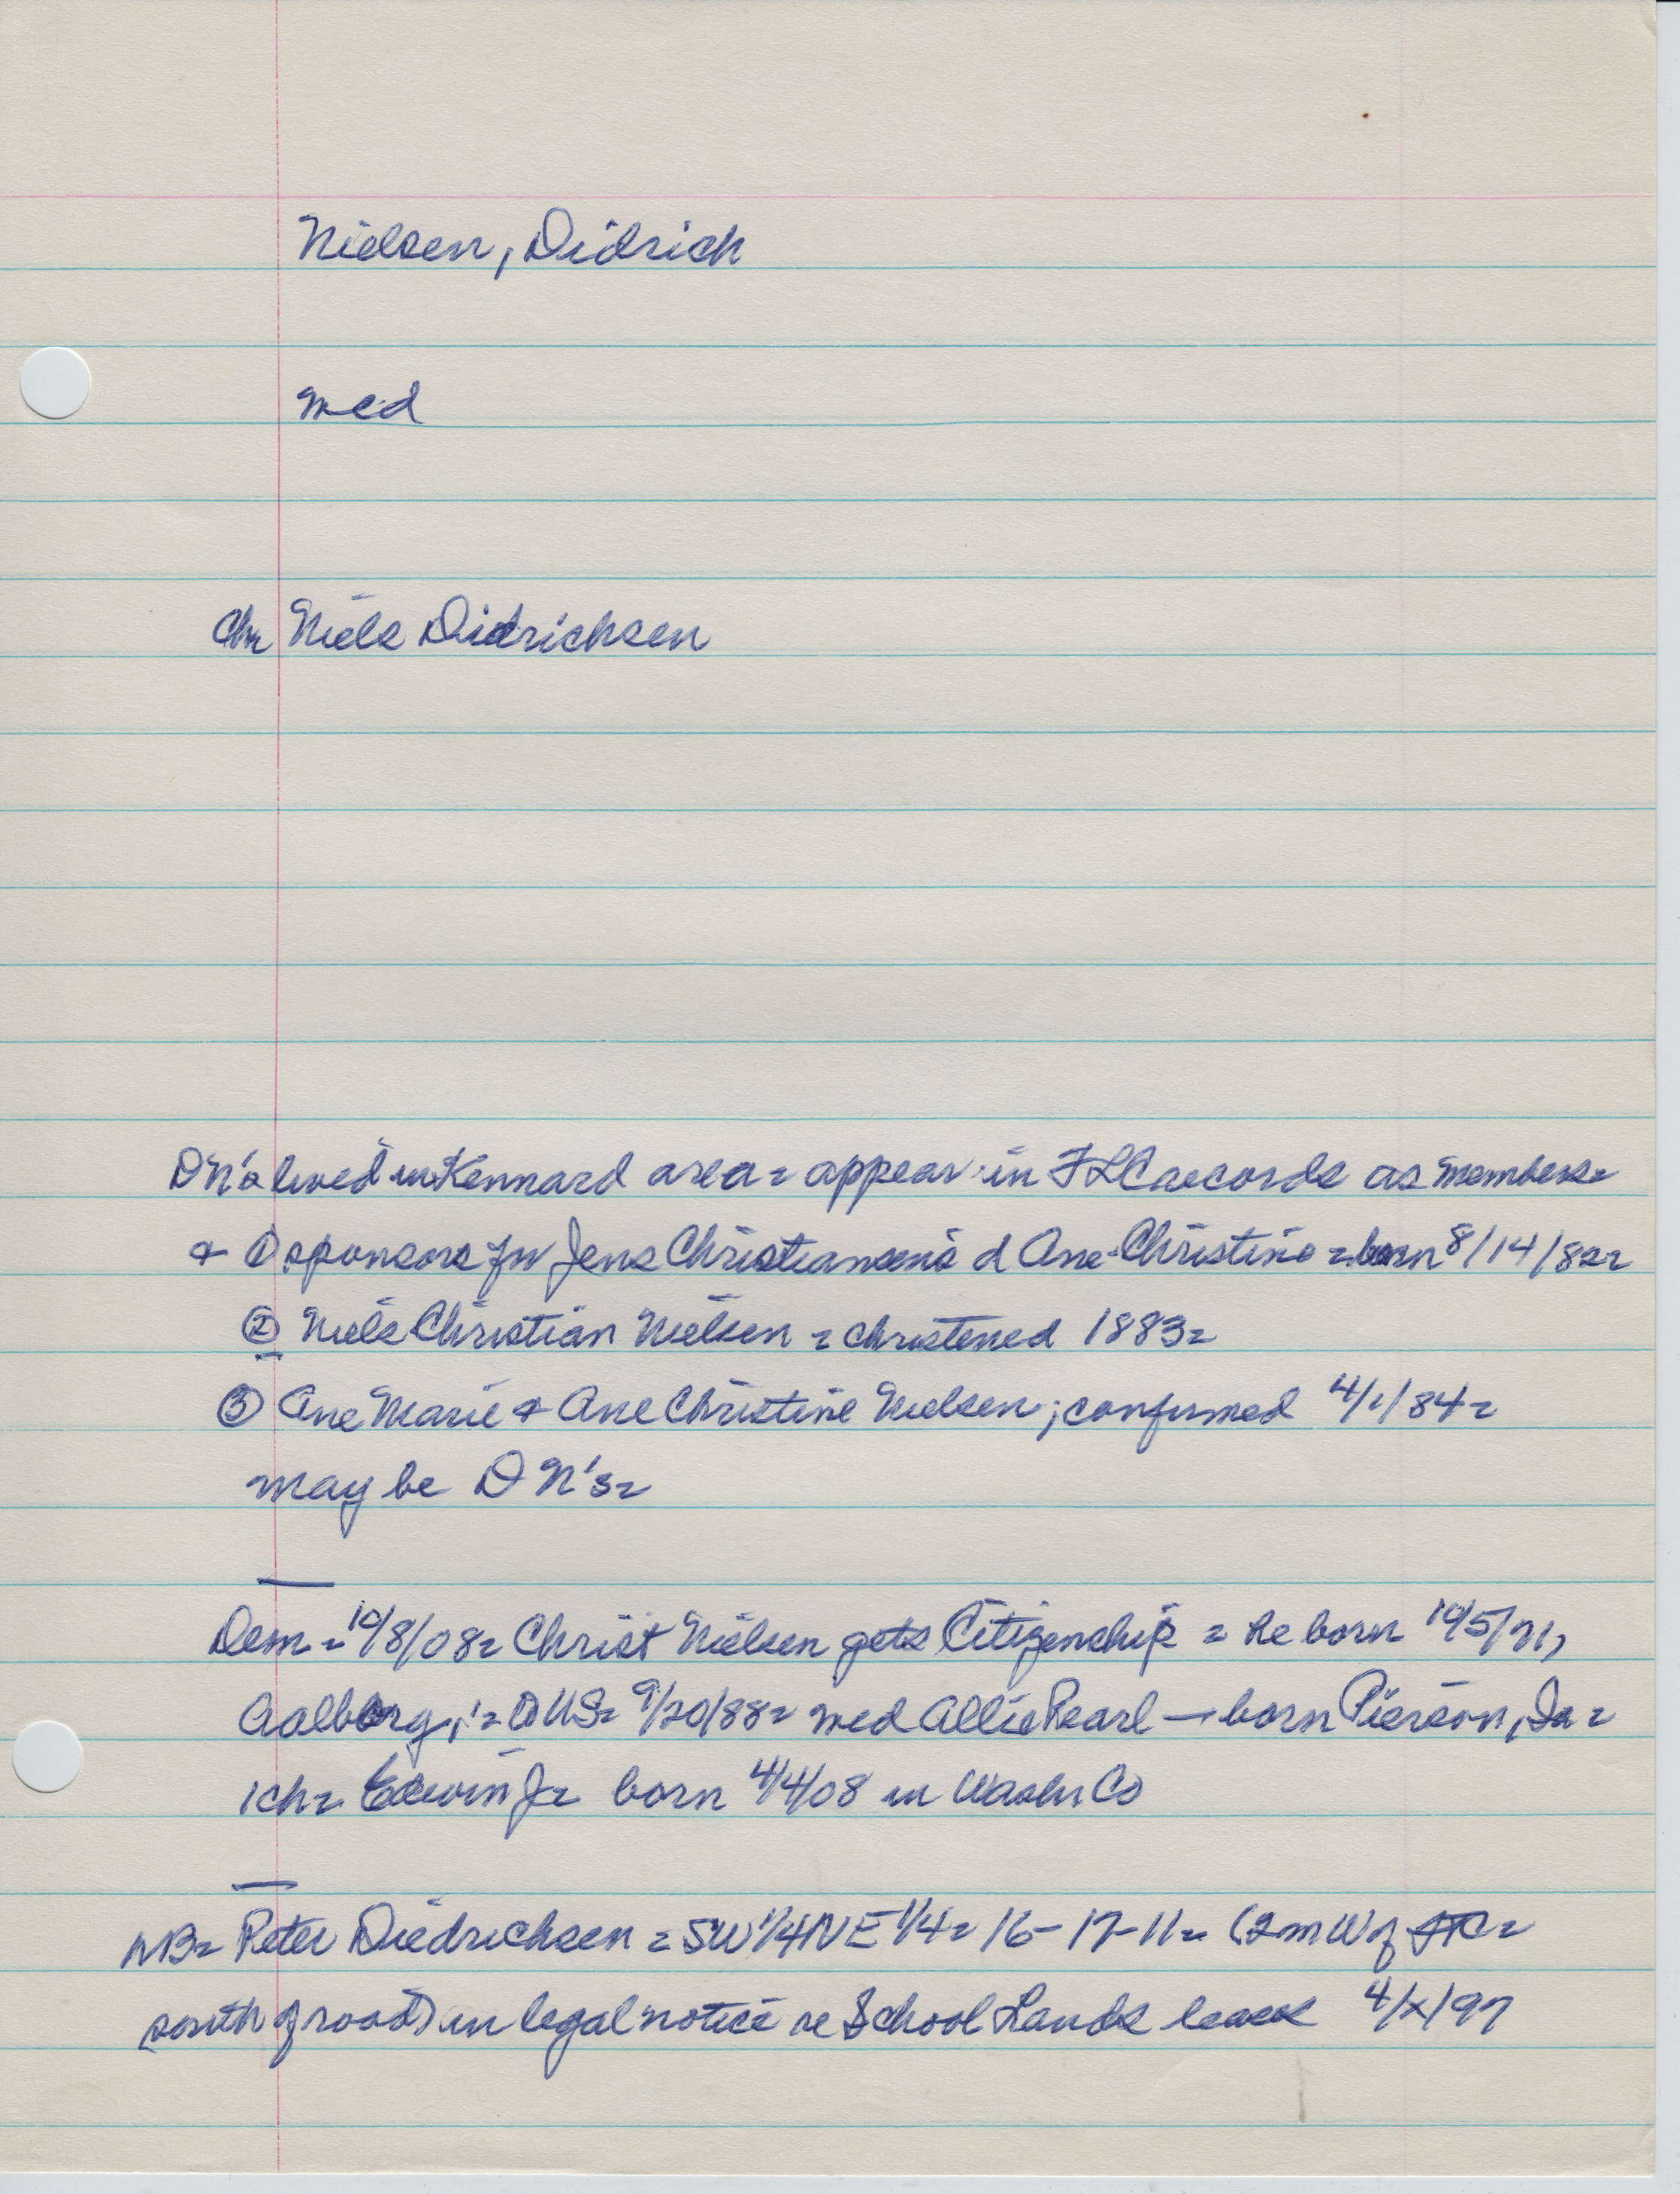 Nielsen, Didrich
med
Chr Niels Didrichsen
DN's lived in Kennard area = appear in FLC records as members =
+ ① sponsors for Jens Christiansen's d Ane Christine = born 8/14/82 =
② Niels Christian Nielsen = christened 1883 =
③ Ane Marie + Ane Christine Nielsen; confirmed 4/1/84 =
may be DN's =
Dem = 10/8/08 = Christ Nielsen gets Citizenship = he born 10/5/71,
Aalborg, = US = 9/20/88 = med Allie Pearl — born Pierson, Ia =
1 ch = Edwin J = born 4/4/08 in Wash Co
NB = Peter Diedrichsen = SW 1/4 NE 1/4 = 16-17-11 = (2 m W of =
south of road) in legal notice re School Lands lease 4/x/97